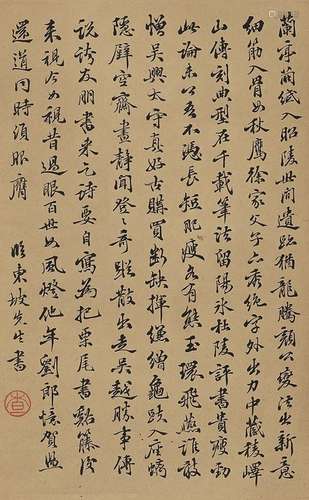 蘭亭繭紙入昭陵世間遺跡猶龍騰顏公變法出新意
細筋入骨如秋鷹徐家父子亦秀絕字外出力中藏稜嶧
山傳刻典型在千載筆法留陽冰杜陵評書貴瘦勁
此論未公吾不憑長短肥瘦各有態玉環飛燕誰敢
憎吳興太守真好古購買斷缺揮縑繒龜趺入座螭
隱壁空齋晝靜聞登登奇蹤散出走吳越勝事傳
說誇友朋書來乞詩要自寫為把栗尾書谿藤後
來視今如視昔過眼百世如風燈他年劉郎憶賀監
還道同時須服膺
臨東坡先生書